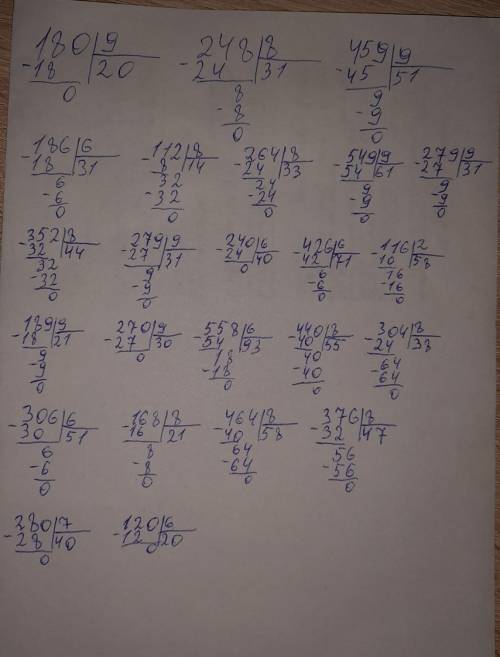 180|9 248|8 459|9
-18 |20 -24 |31 -45 |51
0 8 9
-8 -9
0 0
-186|6 -112|8 -264|8 -549|9 -279|9
18 |31 8 |14 24 |33 54 |61 27 |31
6 32 24 9 9
-6 -32 -24 -9 -9
0 0 0 0 0
-352|8 -279|9 -240|6 -426|6 -116|2
32 |44 27 |31 24 |40 42 |71 10 |58
32 9 0 6 16
-32 -9 -6 -16
0 0 0 0
-189|9 -270|9 -558|6 -440|8 -304|8
18 |21 27 |30 54 |93 40 |55 24 |38
9 0 18 40 64
-9 -18 -40 -64
0 0 0 0
-306|6 -168|8 -464|8 -376|8
30 |51 16 |21 40 |58 32 |47
6 8 64 56
-6 -8 -64 -56
0 0 0 0
-280|7 -120|6
28 |40 12 |20
0 0